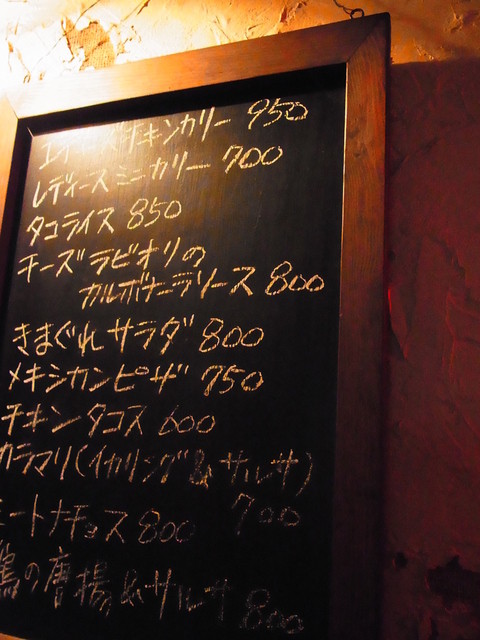 チキンカリー 950
レディースミニカリー 700
タコライス 850
チーズラビオリの
カルボナーラソース 800
きまぐれサラダ 800
メキシカンピザ 750
チキンタコス 600
カラマリ(イカリング&サルサ)
700
ミートナチョス 800
鶏の唐揚&サルサ 800